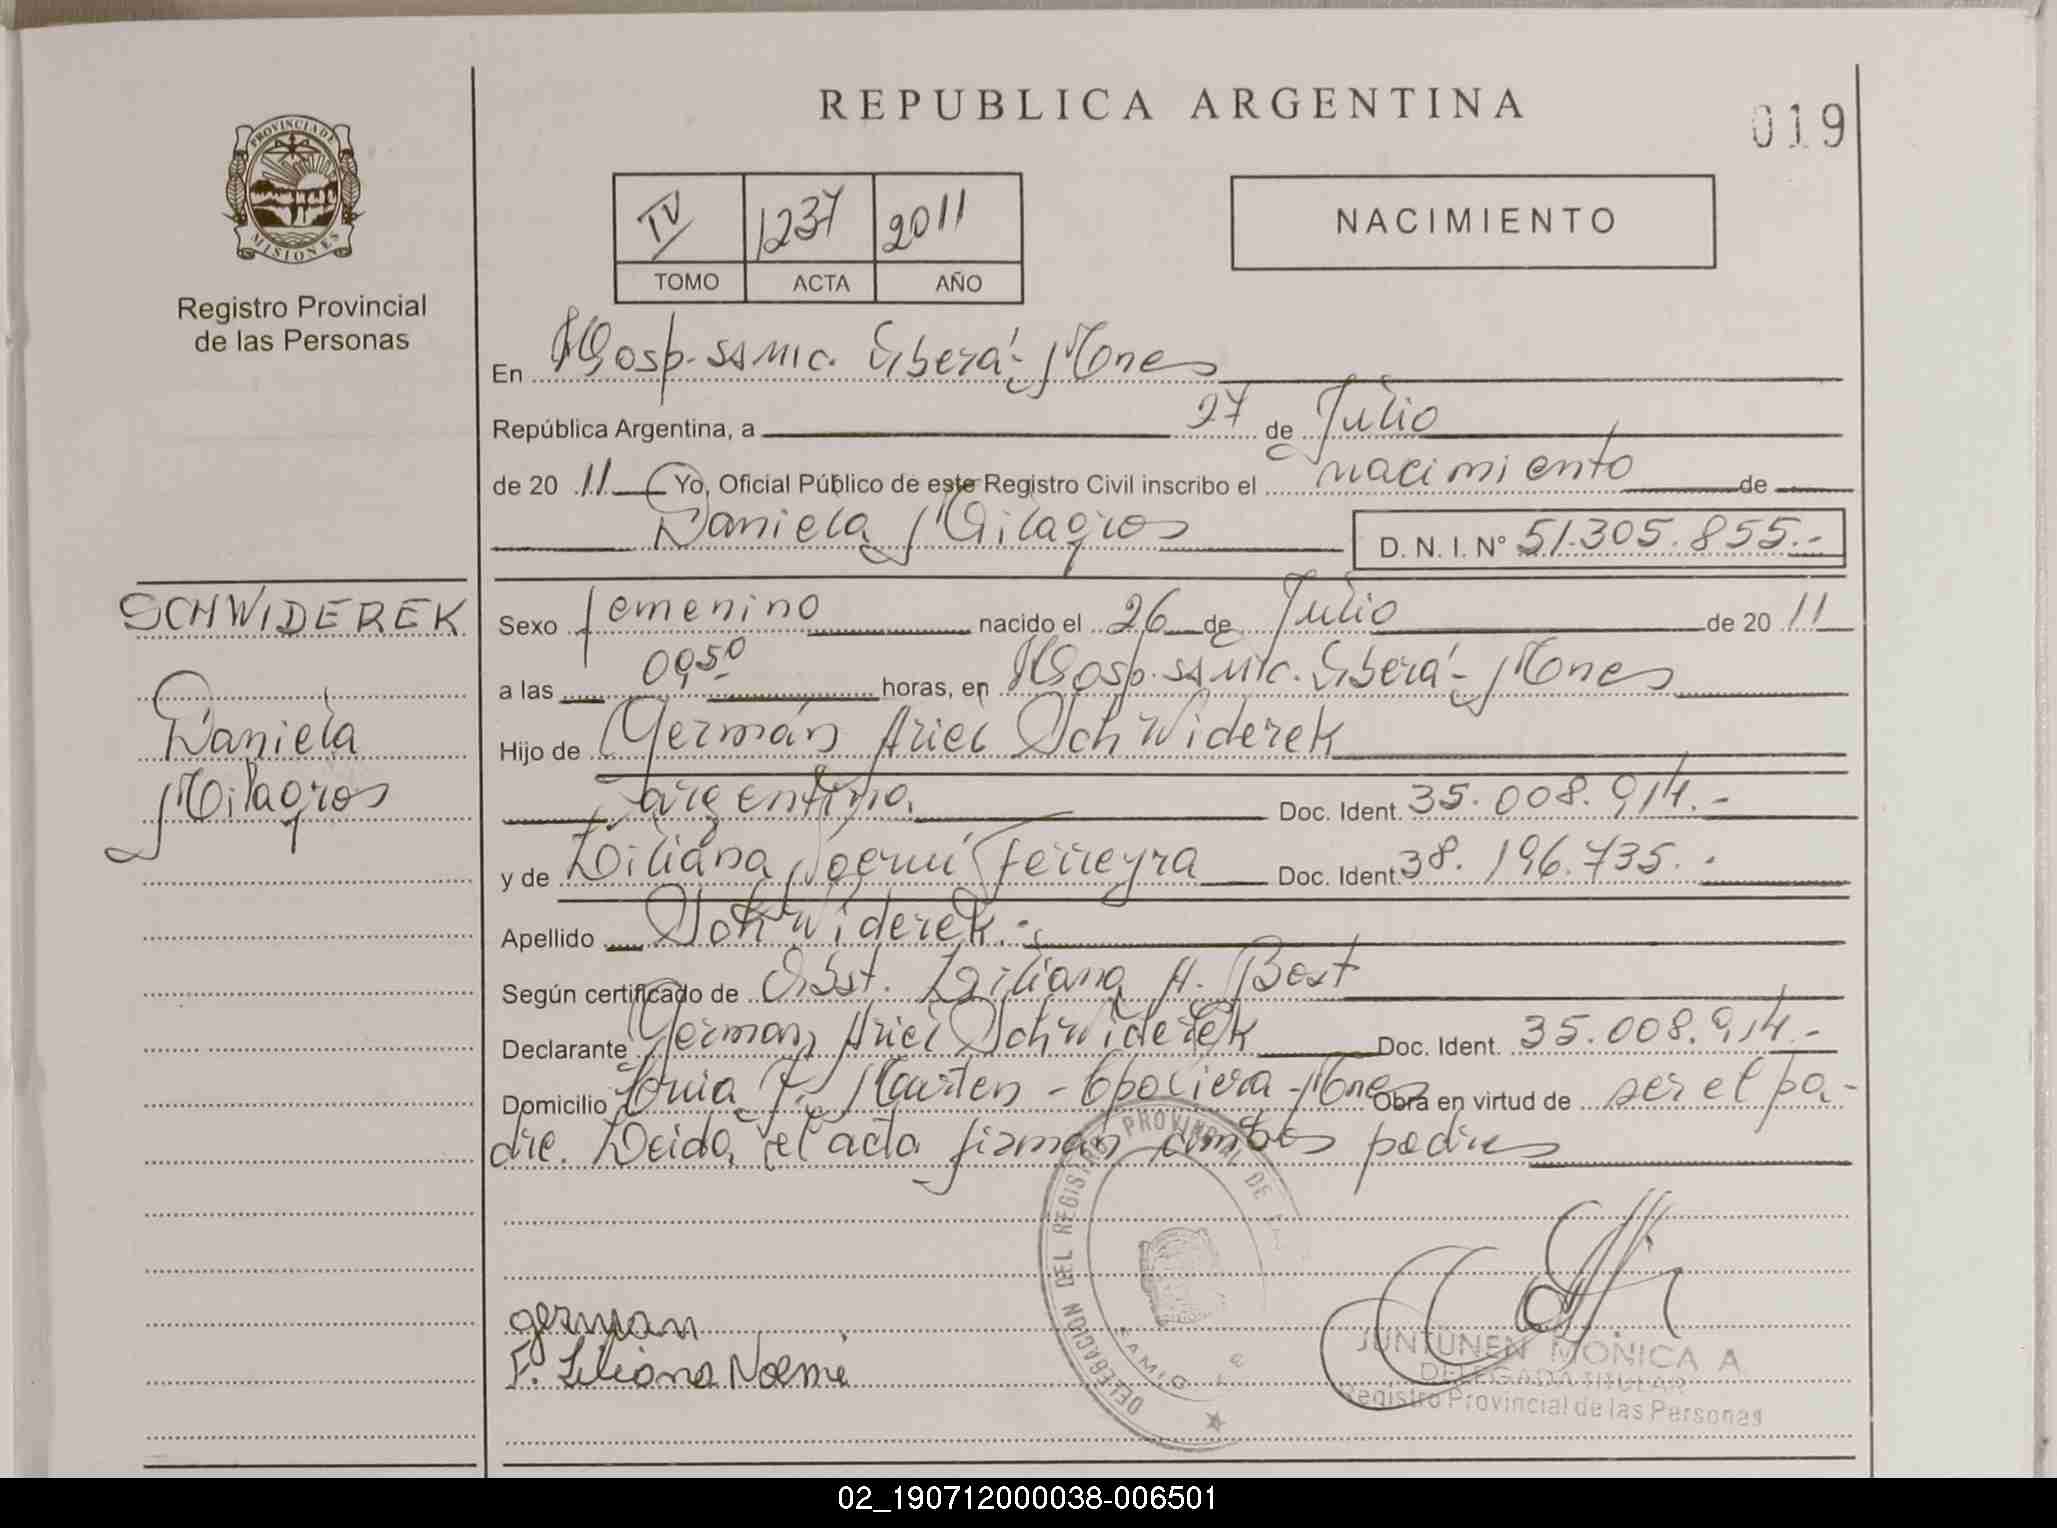 REPUBLICA ARGENTINA
019
PROVINCIA DE
MISIONES
Registro Provincial
de las Personas
IV 1237 2011
TOMO ACTA AÑO
NACIMIENTO
En Hosp. SAMIC. Oberá - Mnes
República Argentina, a 27 de Julio
de 20 11 Yo, Oficial Público de este Registro Civil inscribo el nacimiento de
Daniela Milagros D. N. I. N° 51.305.855.-
SCHWIDEREK
Daniela
Milagros
Sexo femenino nacido el 26 de Julio de 20 11
a las 09,50 horas, en Hosp. SAMIC. Oberá - Mnes
Hijo de Germán Ariel Schwiderek
argentino. Doc. Ident. 35.008.914.-
y de Liliana Noemí Ferreyra Doc. Ident. 38.196.735.-
Apellido Schwiderek.-
Según certificado de Obst. Liliana A. Bost
Declarante German Ariel Schwiderek Doc. Ident. 35.008.914.-
Domicilio Mnes Obra en virtud de ser el pa-
dre. Leida el acta firman ambos padres
german
F. Liliana Noemi
DELEGACION DEL REGISTRO PROVINCIAL DE
JUNTUNEN MONICA A
DELEGADA TITULAR
Registro Provincial de las Personas
02_190712000038-006501